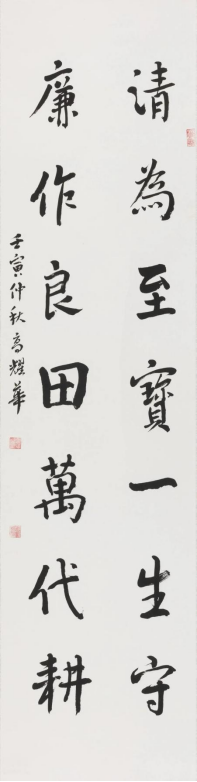 清為至寳一生守
廉作良田萬代耕
壬寅仲秋高耀華